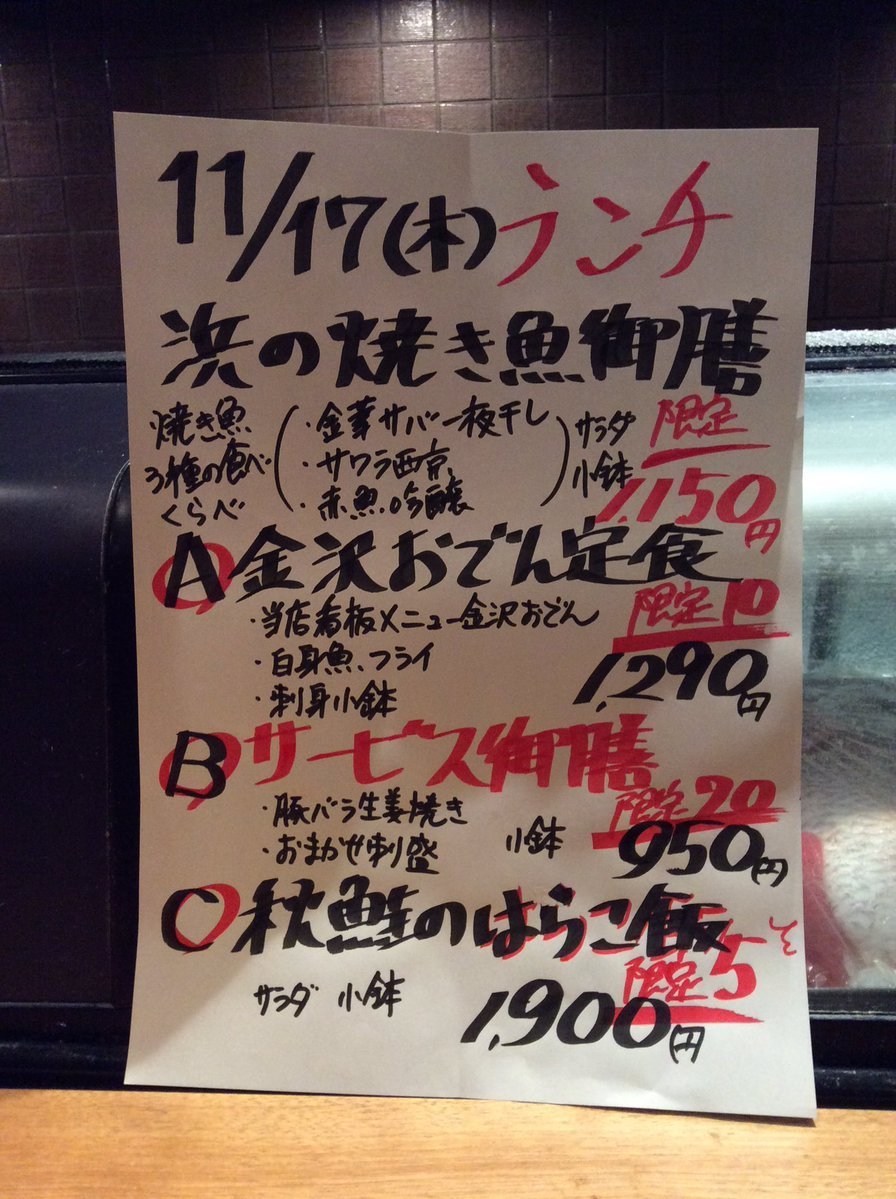 11/17(木)ランチ
浜の焼き魚御膳
焼き魚
3種の食べ
くらべ
・金華サバ一夜干し
・サワラ西京
・赤魚吟醸
サラダ
小鉢
限定
1,150円
A 金沢おでん定食
・当店看板メニュー金沢おでん
・白身魚フライ
・刺身小鉢
限定10
1,290円
B サービス御膳
・豚バラ生姜焼き
・おまかせ刺盛 小鉢
限定20
950円
C 秋鮭のはらこ飯
サラダ 小鉢
限定5
1,900円